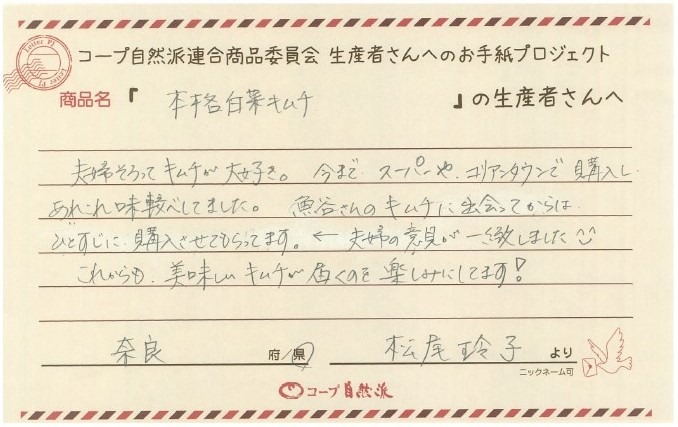 コープ自然派連合商品委員会 生産者さんへのお手紙プロジェクト
商品名『 本格白菜キムチ 』の生産者さんへ
夫婦そろってキムチが大好き。 今まで スーパーや、コリアンタウンで購入し、
あれこれ味較べしてました。 魚谷さんのキムチに出会ってからは
ひとすじに購入させてもらってます。← 夫婦の意見が一致しました
これからも、美味しいキムチが届くのを楽しみにしてます!
奈良 府/県 松尾玲子 より
ニックネーム可
コープ自然派